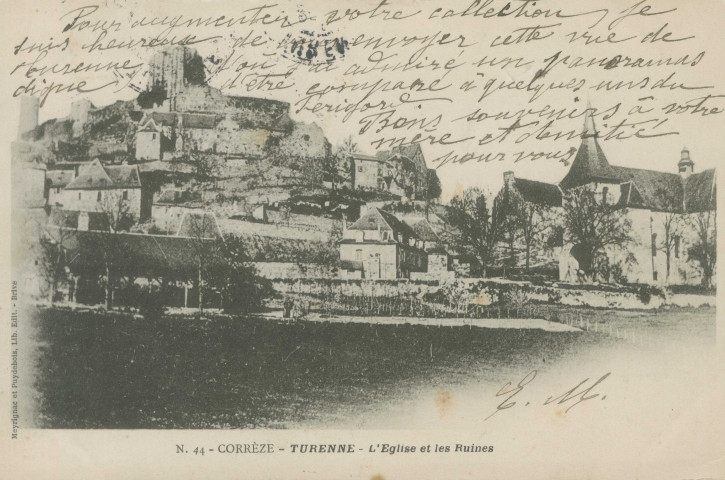 Pour augmenter votre collection, je
suis heureux de envoyer cette vue de
Turenne d'où j'ai admiré un panoramas
digne d'être comparé à quelques uns du
Périgord
Bons souvenirs à votre
mère et demitié
pour vous
E. M.
Meyrignac et Puydebois, Lib. Edit. - Brive
N. 44 - CORRÈZE - TURENNE - L'Eglise et les Ruines